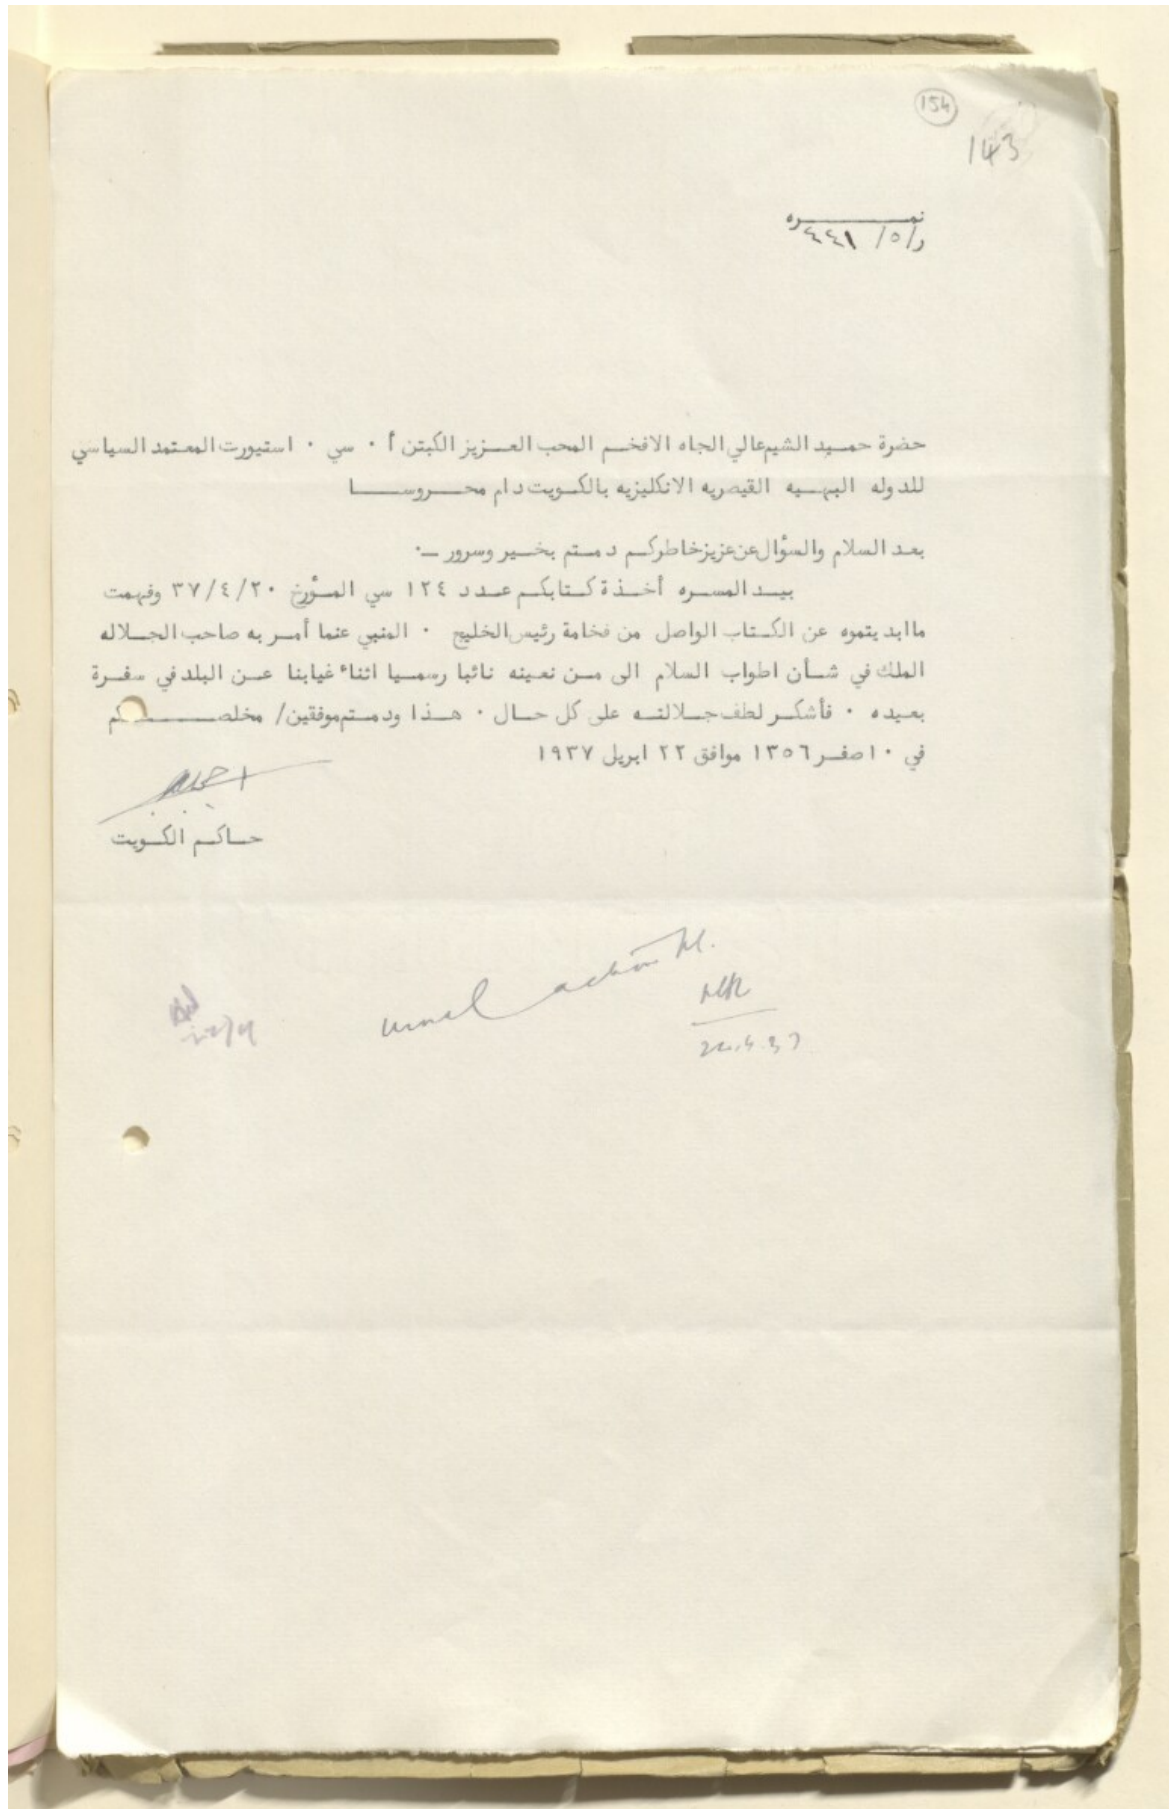 154
143
نمره
ر/٥/ ٤٤١
حضرة حميد الشيم عالي الجاه الافخم المحب العزيز الكبتن أ ٠ سي ٠ استيورت المعتمد السياسي
للدوله البهيه القيصريه الانكليزيه بالكويت دام محروسا
بعد السلام والسؤال عن عزيز خاطركم دمتم بخير وسرور ــ٠
بيد المسره أخذة كتابكم عدد ١٢٤ سي المؤرخ ٣٧/٤/٢٠ وفهمت
ماابديتموه عن الكتاب الواصل من فخامة رئيس الخليج ٠ المنبي عنما أمر به صاحب الجلاله
الملك في شأن اطواب السلام الى من نعينه نائبا رسميا اثناء غيابنا عن البلد في سفرة
بعيده ٠ فأشكر لطف جلالته على كل حال ٠ هذا ودمتم موفقين/ مخلصكم
في ١٠ صفر ١٣٥٦ موافق ٢٢ ابريل ١٩٣٧
حاكم الكويت
usual action